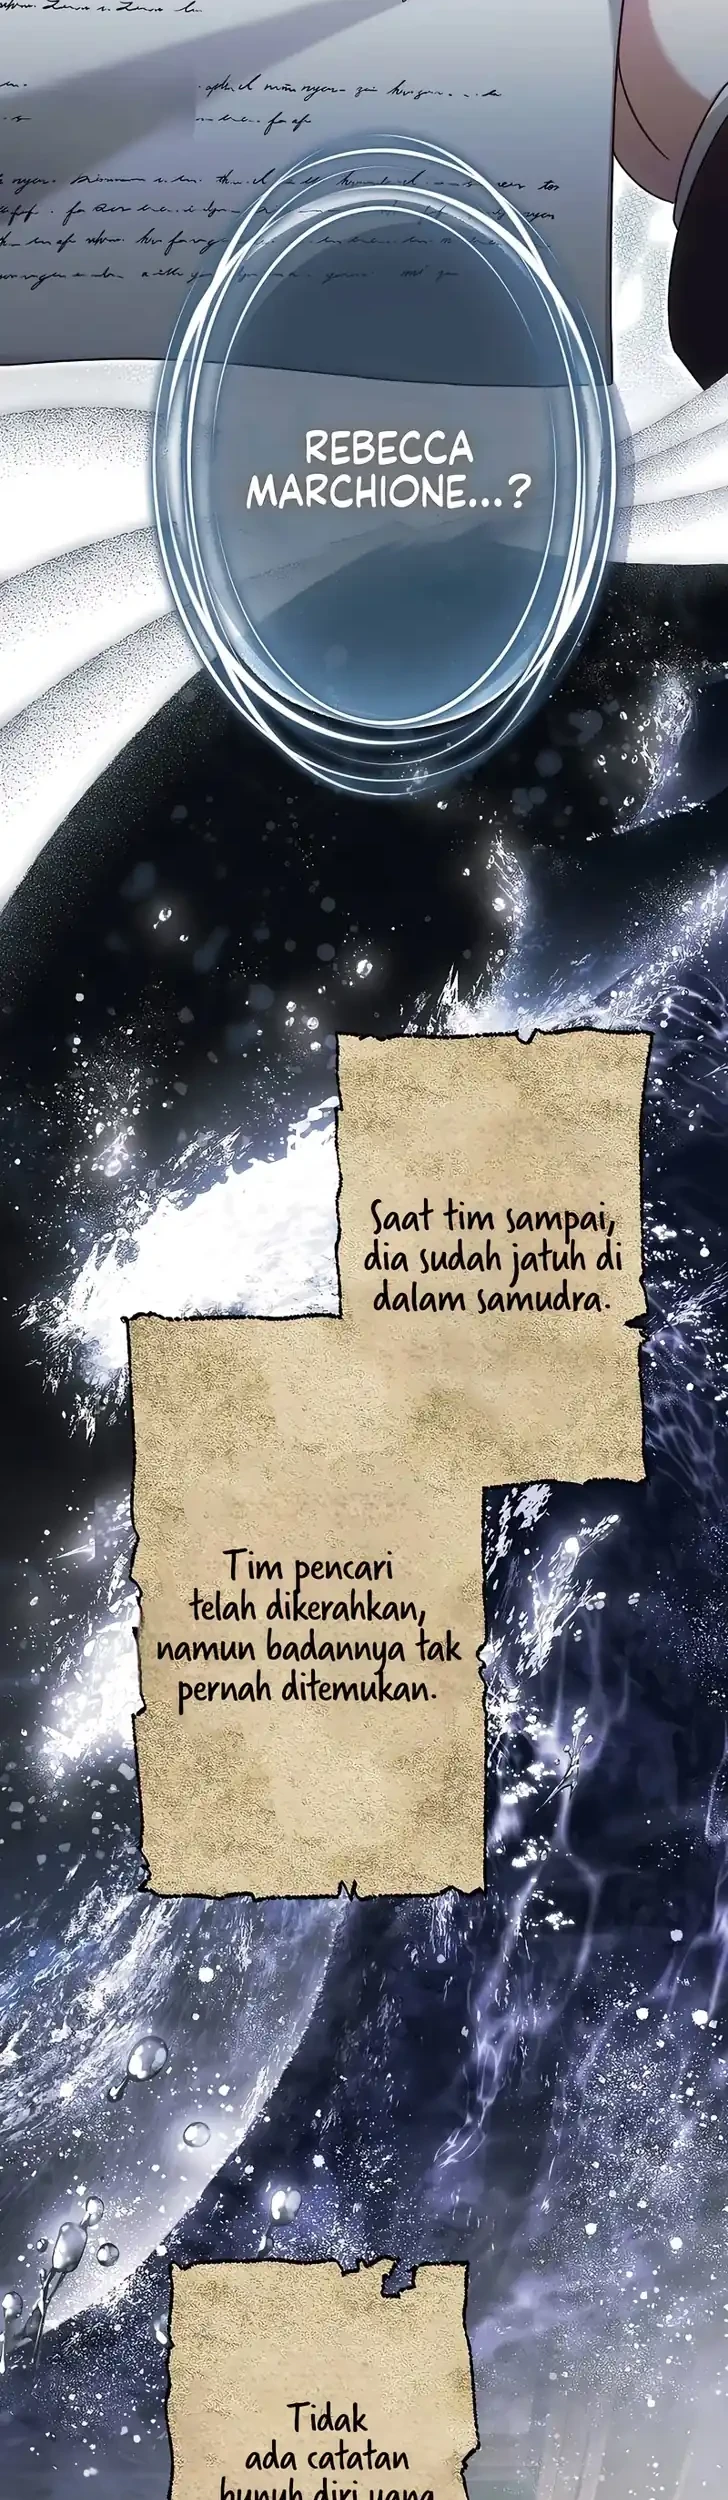 REBECCA
MARCHIONE...?
Saat tim sampai,
dia sudah jatuh di
dalam samudra.
Tim pencari
telah dikerahkan,
namun badannya tak
pernah ditemukan.
Tidak
ada catatan
bunuh diri yang